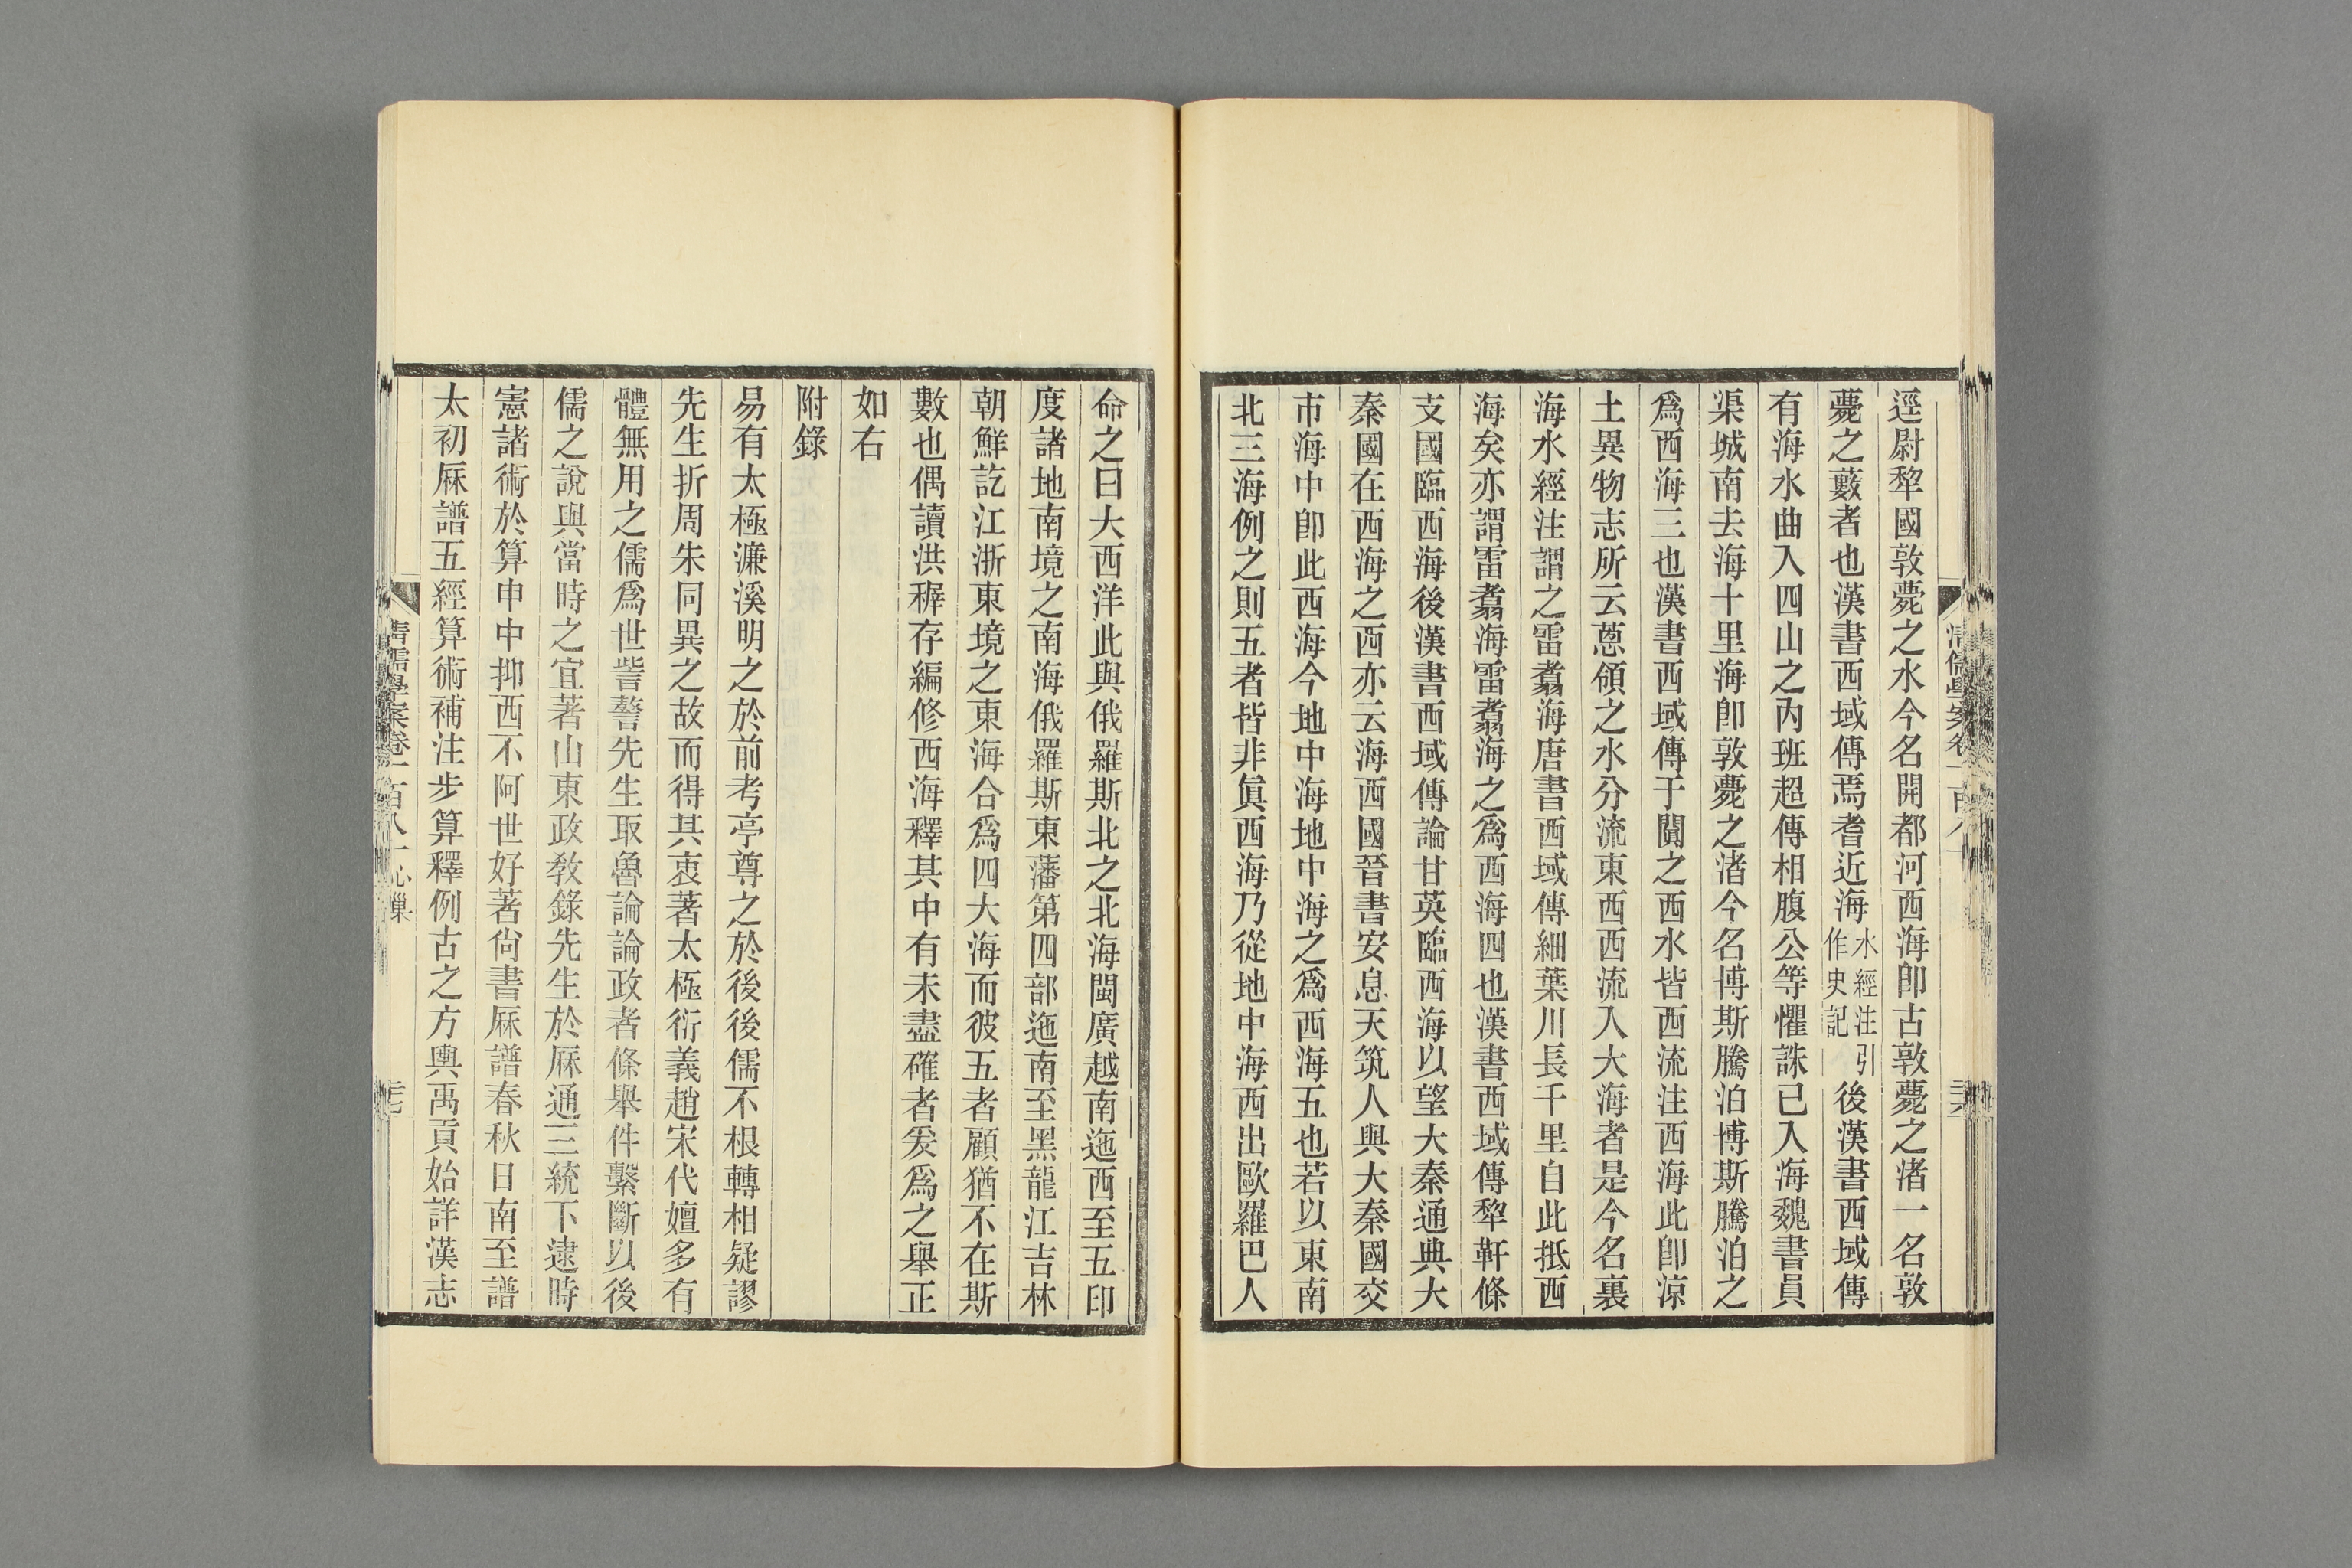 逕尉犂國敦薨之水今名開都河西海卽古敦薨之渚一名敦
薨之藪者也漢書西域傳焉耆近海水經注引作史記後漢書西域傳
有海水曲入四山之內班超傳相腹公等懼誅已入海魏書員
渠城南去海十里海卽敦薨之渚今名博斯騰泊博斯騰泊之
爲西海三也漢書西域傳于闐之西水皆西流注西海此卽涼
土異物志所云蔥領之水分流東西西流入大海者是今名裏
海水經注謂之雷翥海唐書西域傳細葉川長千里自此抵西
海矣亦謂雷翥海雷翥海之爲西海四也漢書西域傳犂靬條
支國臨西海後漢書西域傳論甘英臨西海以望大秦通典大
秦國在西海之西亦云海西國晉書安息天筑人與大秦國交
市海中卽此西海今地中海地中海之爲西海五也若以東南
北三海例之則五者皆非眞西海乃從地中海西出歐羅巴人
命之曰大西洋此與俄羅斯北之北海閩廣越南迤西至五印
度諸地南境之南海俄羅斯東藩第四部迤南至黑龍江吉林
朝鮮訖江浙東境之東海合爲四大海而彼五者顧猶不在斯
數也偶讀洪穉存編修西海釋其中有未盡確者爰爲之舉正
如右
附錄
易有太極濂溪明之於前考亭尊之於後後儒不根轉相疑謬
先生折周朱同異之故而得其衷著太極衍義趙宋代嬗多有
體無用之儒爲世訾謷先生取魯論論政者條舉件繫斷以後
儒之說與當時之宜著山東政教錄先生於厤通三統下逮時
憲諸術於算申中抑西不阿世好著尙書厤譜春秋日南至譜
太初厤譜五經算術補注步算釋例古之方輿禹貢始詳漢志
淸儒學案卷一百八十 心巢